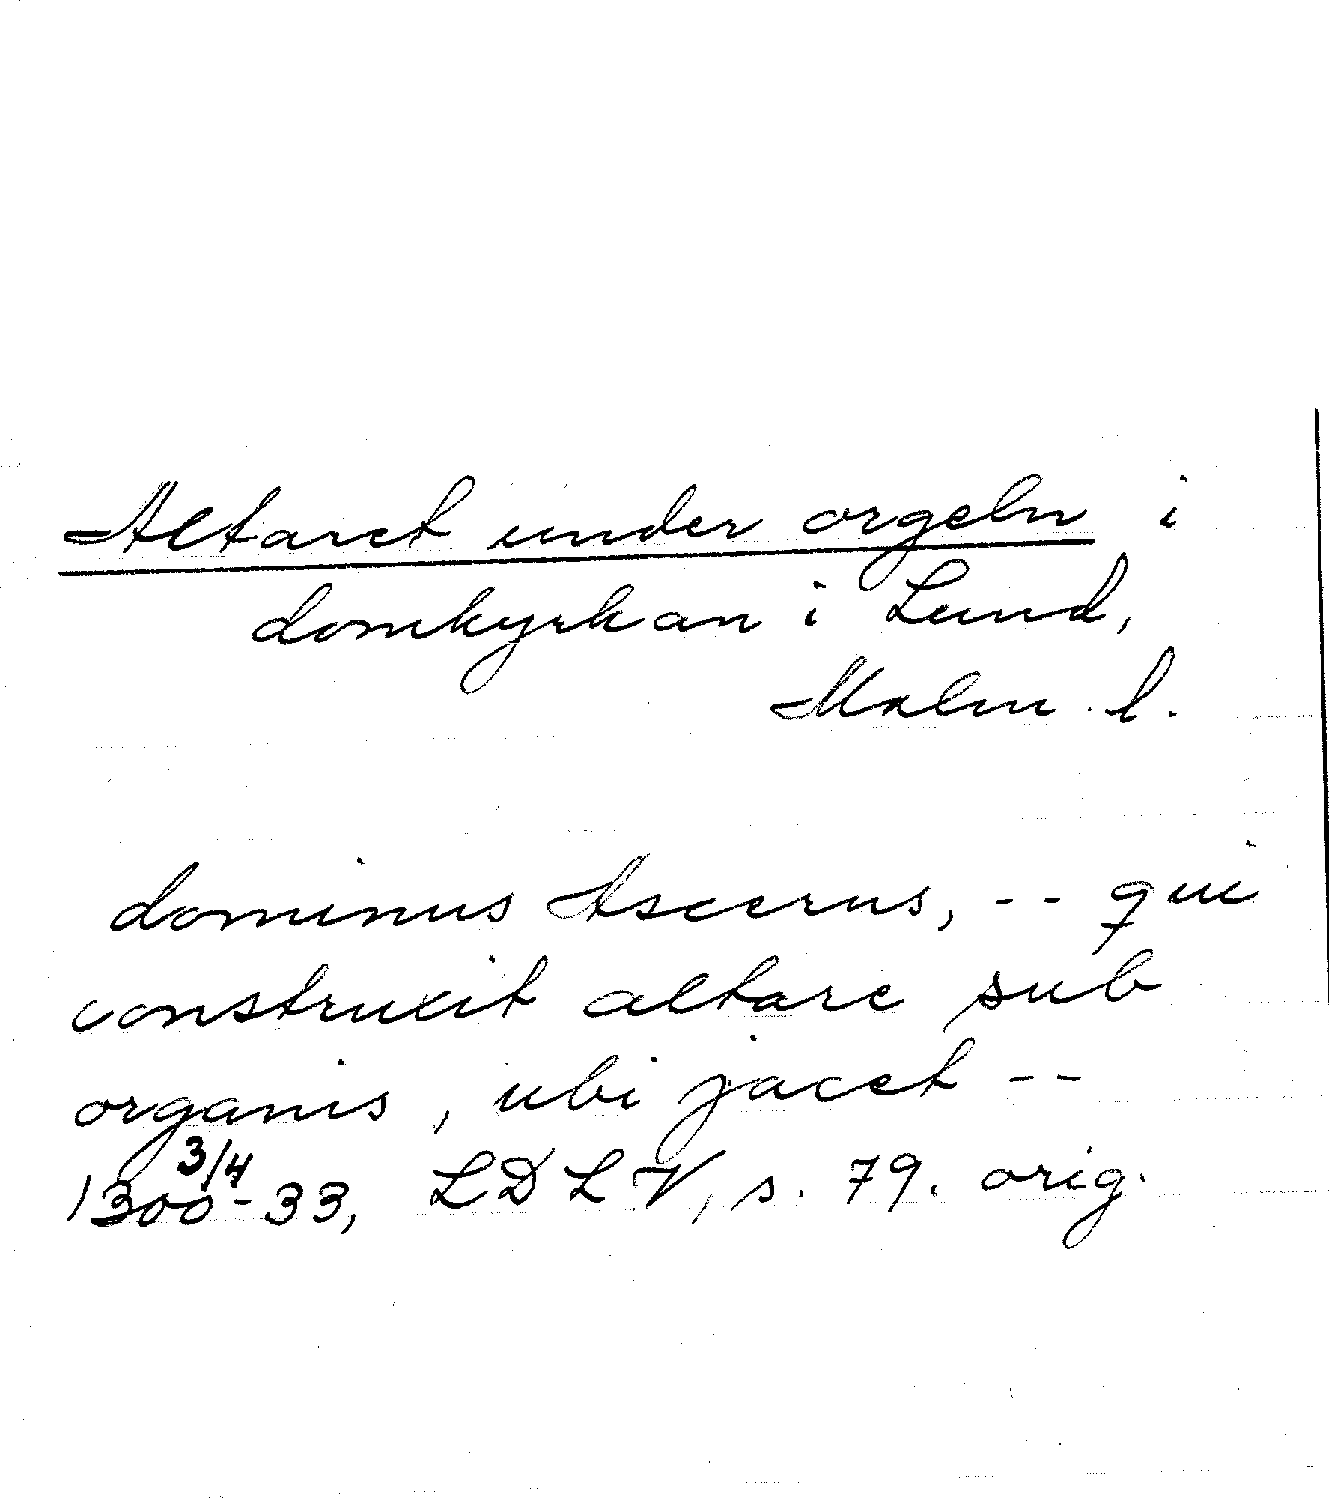 Altaret under orgeln i
domkyrkan i Lund,
Malm. l.
dominus Ascerus, -- qui
construxit altare sub
organis, ubi jacet --
3/4
1300-33, LDLV, s. 79. orig.